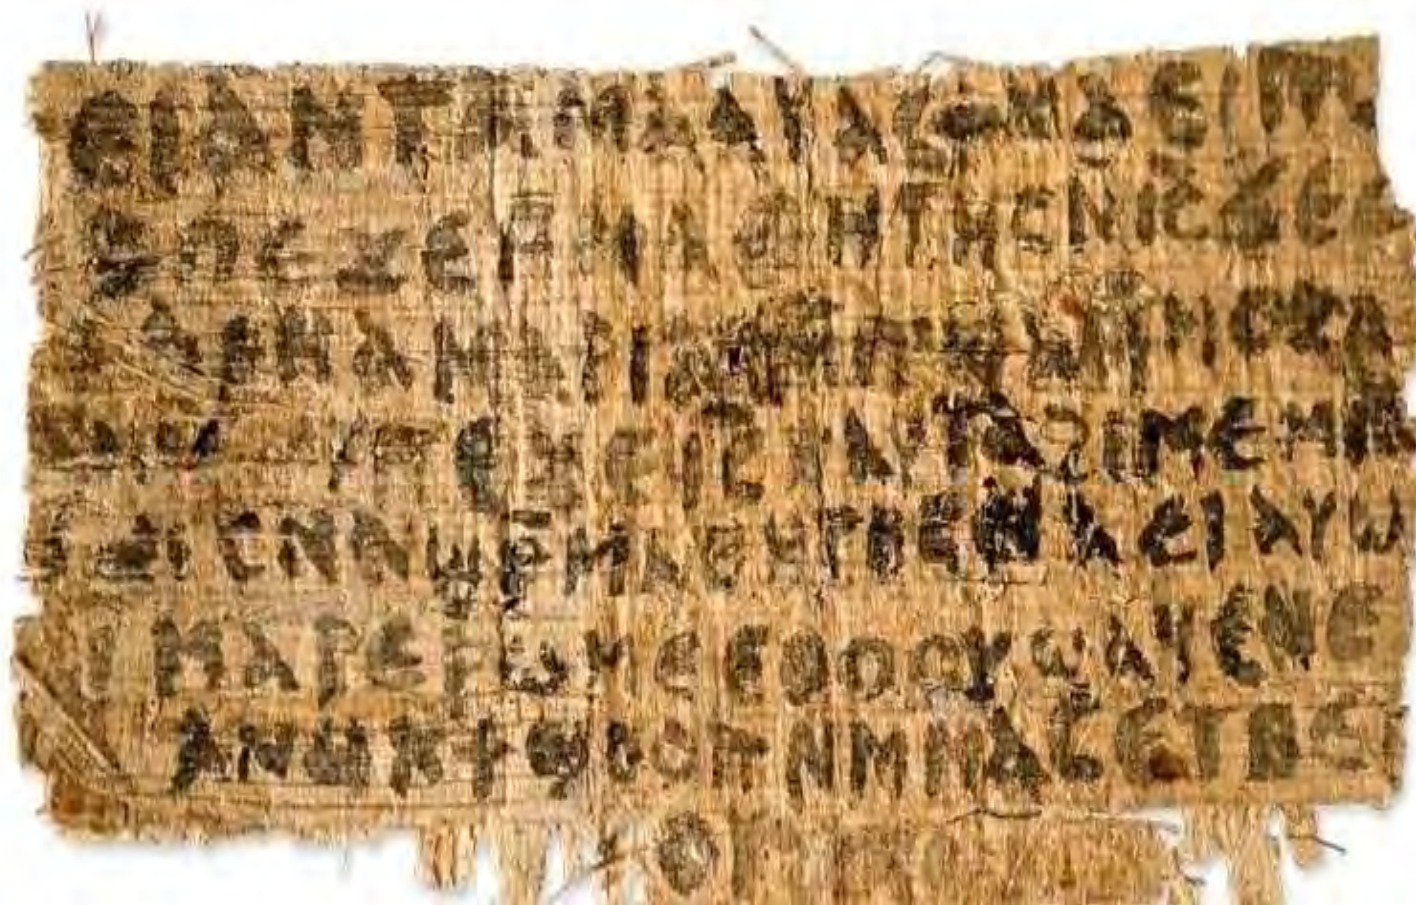 ⲉⲓ ⲁⲛ ⲧⲁⲙⲁⲁⲩ ⲁⲥϯ ⲛⲁⲉⲓ ⲡⲱ
ⲥ ⲡⲉϫⲉ ⲙⲙⲁⲑⲏⲧⲏⲥ ⲛⲓ̅ⲥ̅ ϫⲉ ⲥ
ⲁⲣⲛⲁ ⲙⲁⲣⲓⲁⲙ
ⲡⲉϫⲉ ⲓ̅ⲥ̅ ⲛⲁⲩ ⲧⲁϩⲓⲙⲉ ⲙⲛ
ⲥⲛⲁϣⲣ̅ⲙⲁⲑⲏⲧⲏⲥ ⲛⲁⲉⲓ ⲁⲩⲱ
ⲓ ⲙⲁⲣⲉⲣⲱⲙⲉ ⲉⲑⲟⲟⲩ ϣⲁϥⲉ ⲛⲉ
ⲁⲛⲟⲕ ϯϣⲟⲟⲡ ⲛⲙⲙⲁⲥ ⲉⲧⲃⲉ